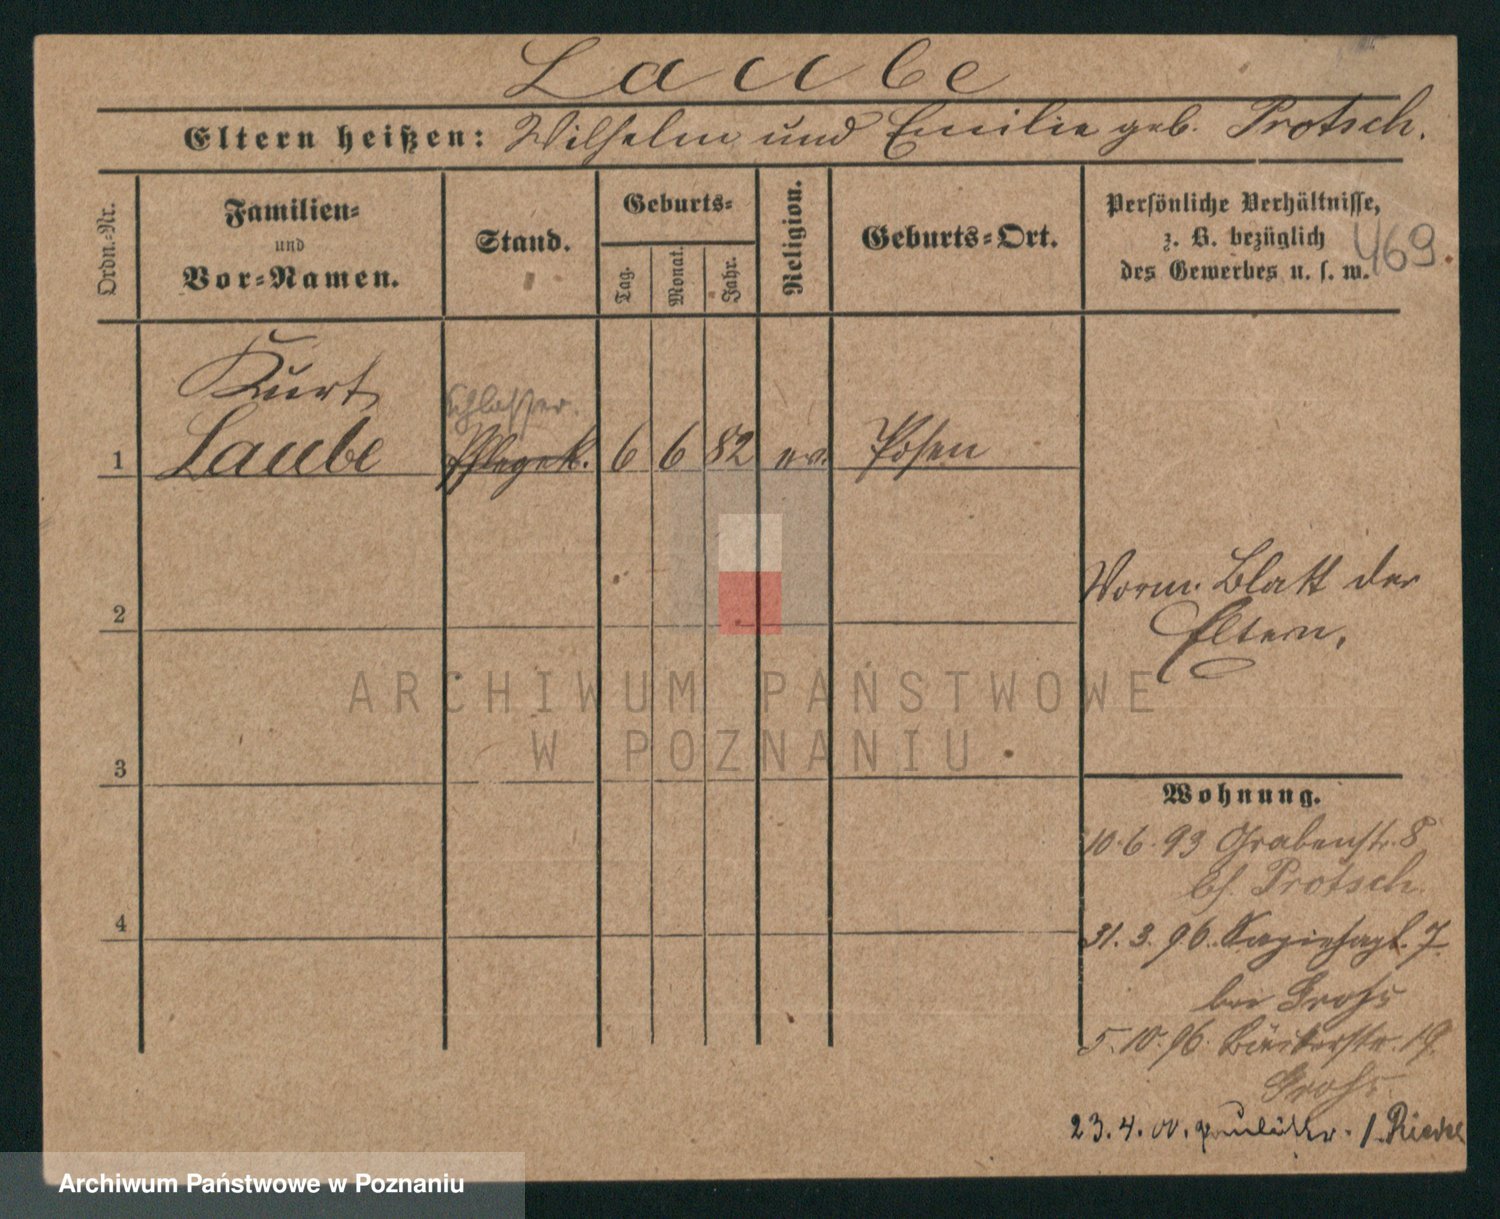 Laube
Eltern heißen: Wilhelm und Emilie geb. Protsch.
Ordn.-Nr.
Familien-
und
Vor-Namen.
Stand.
Geburts-
Tag.
Monat.
Jahr.
Religion.
Geburts-Ort.
Persönliche Verhältnisse,
z. B. bezüglich
des Gewerbes u. s. w.
469.
Kurt
Schlosser.
1 Laube Pflegek. 6 6 82 ev. Posen
2
Vorm. Blatt der
Eltern.
ARCHIWUM PAŃSTWOWE
W POZNANIU
3
Wohnung.
10.6.93 Grabenstr. 8
bei Protsch.
4
31.3.96. Sapiehapl. 7.
bei
5.10.96. Bäckerstr. 19.
23.4.00. 1. Riedel
Archiwum Państwowe w Poznaniu